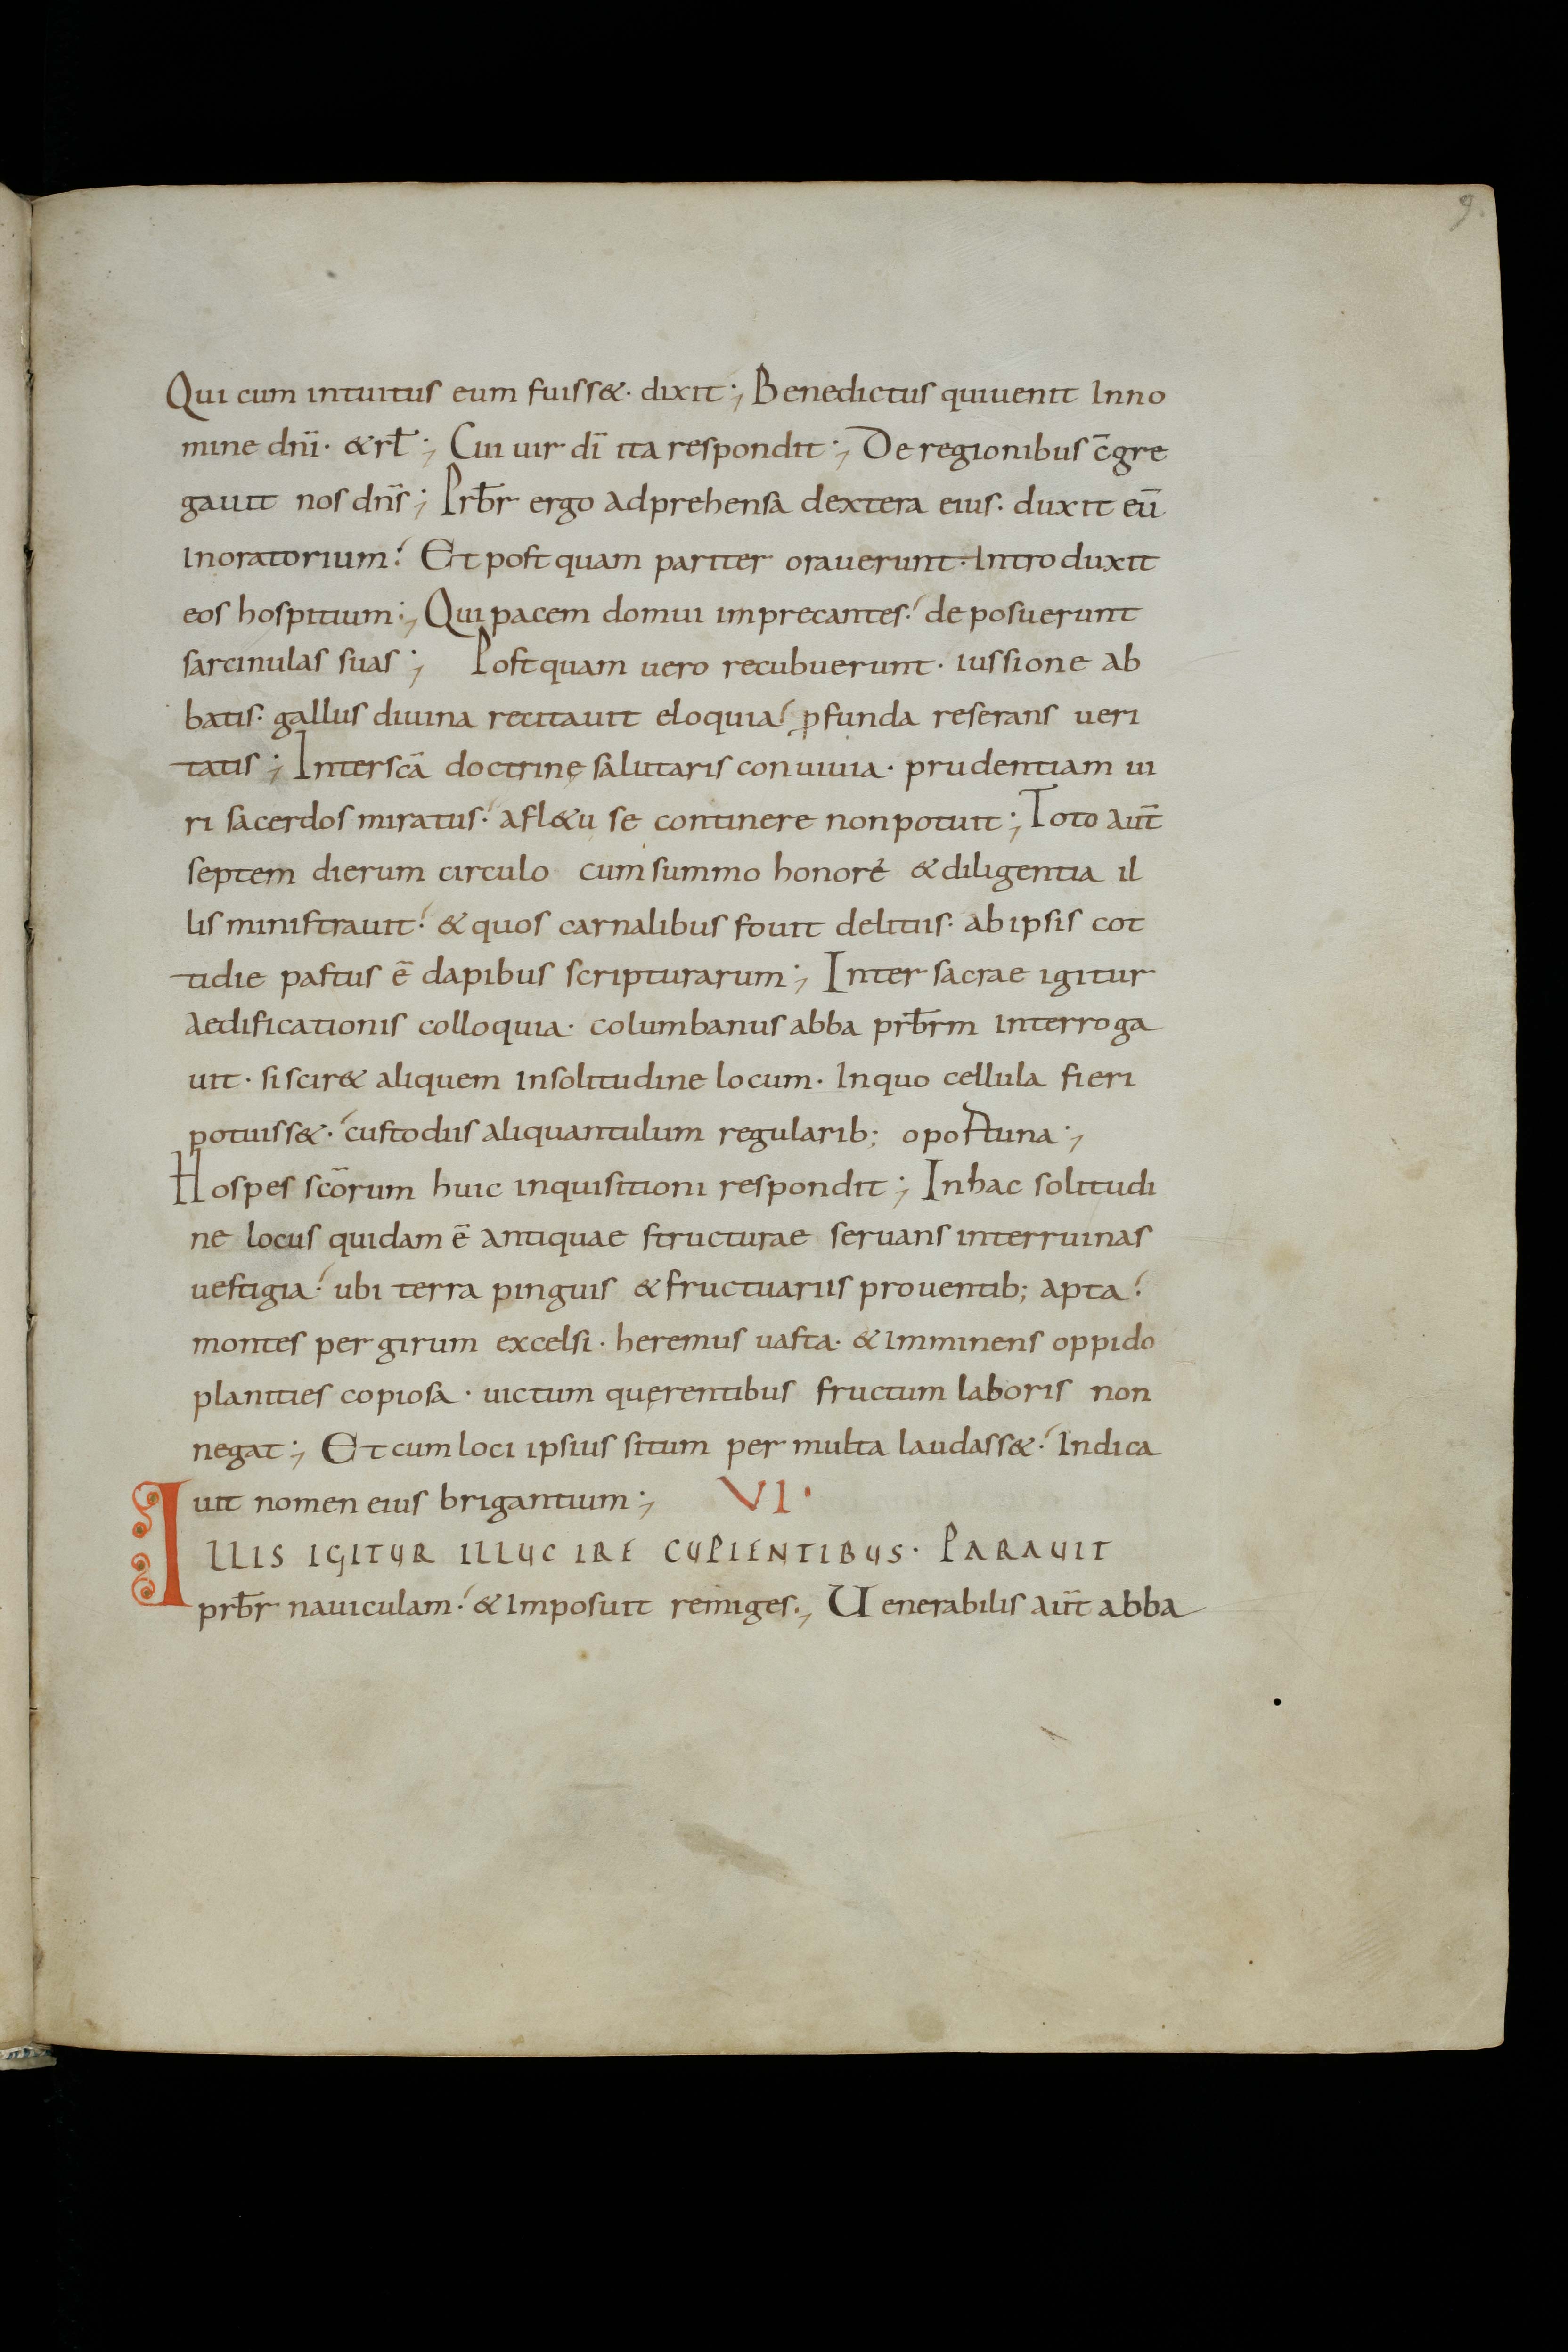 9.
Qui cum intuitus eum fuiss&. dixit; Benedictus quiuenit Inno
mine dnī. &rł; Cui uir dī ita respondit; De regionibus c̄gre
gauit nos dn̄s; Prb̄r ergo adprehensa dextera eius. duxit eū
inoratorium. Et postquam pariter orauerunt. Introduxit
eos hospitium; Qui pacem domui imprecantes. deposuerunt
sarcinulas suas; Postquam uero recubuerunt. iussione ab
batis. gallus diuina recitauit eloquia. ꝓfunda reserans ueri
tatis; Interscā doctrinę salutaris conuiuia. prudentiam ui
ri sacerdos miratus. afl&u se continere nonpotuit; Toto aut̄
septem dierum circulo cum summo honore &diligentia il
lis ministrauit. & quos carnalibus fouit delitiis. ab ipsis cot
tidie pastus ē dapibus scripturarum; Inter sacrae igitur
aedificationis colloquia. columbanus abba prb̄rm interroga
uit. si scir& aliquem insolitudine locum. Inquo cellula fieri
potuiss&. custodiis aliquantulum regularib; oportuna;
Hospes scōrum huic inquisitioni respondit; Inhac solitudi
ne locus quidam ē antiquae structurae seruans interruinas
uestigia. ubi terra pinguis &fructuariis prouentib; apta.
montes per girum excelsi. heremus uasta. &imminens oppido
planities copiosa. uictum quęrentibus fructum laboris non
negat; Et cum loci ipsius situm per multa laudass&. Indica
uit nomen eius brigantium; VI.
ILLIS IGITUR ILLUC IRE CUPIENTIBUS. PARAUIT
prb̄r nauiculam. &imposuit remiges; Uenerabilis aut̄ abba